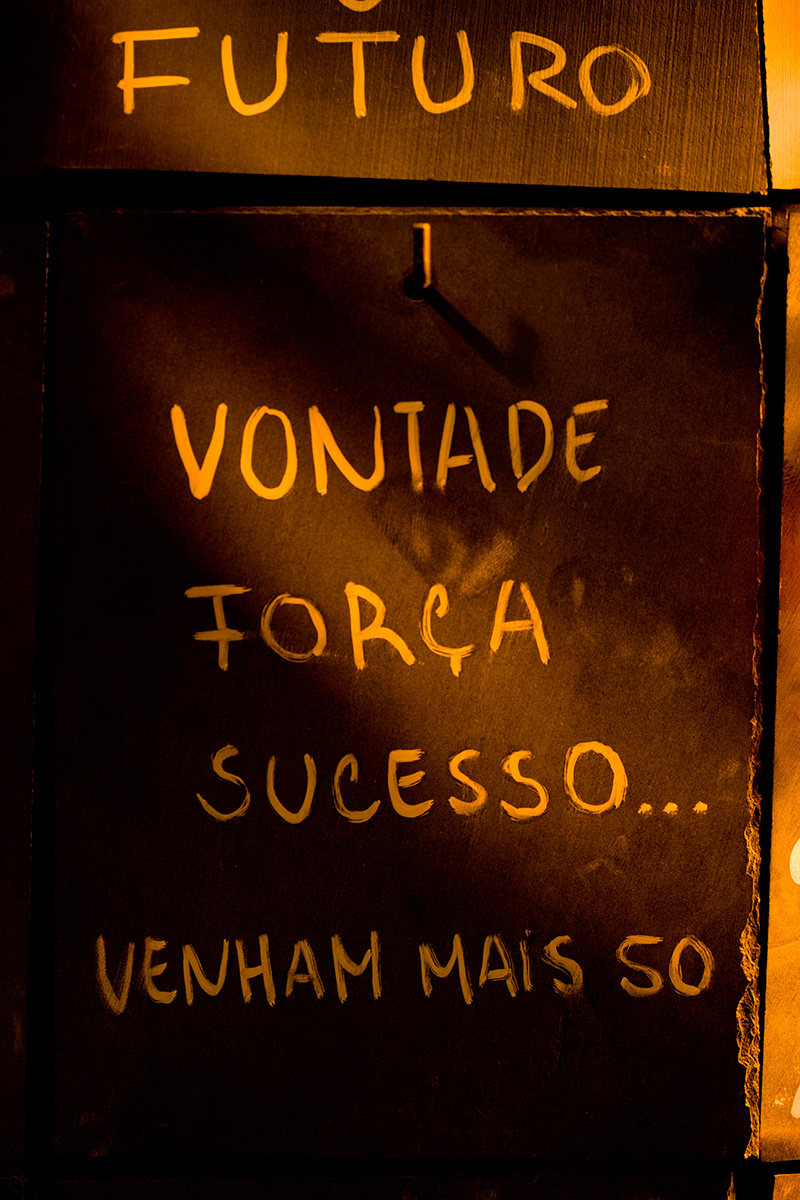 FUTURO
VONTADE
FORÇA
SUCESSO...
VENHAM MAIS 50